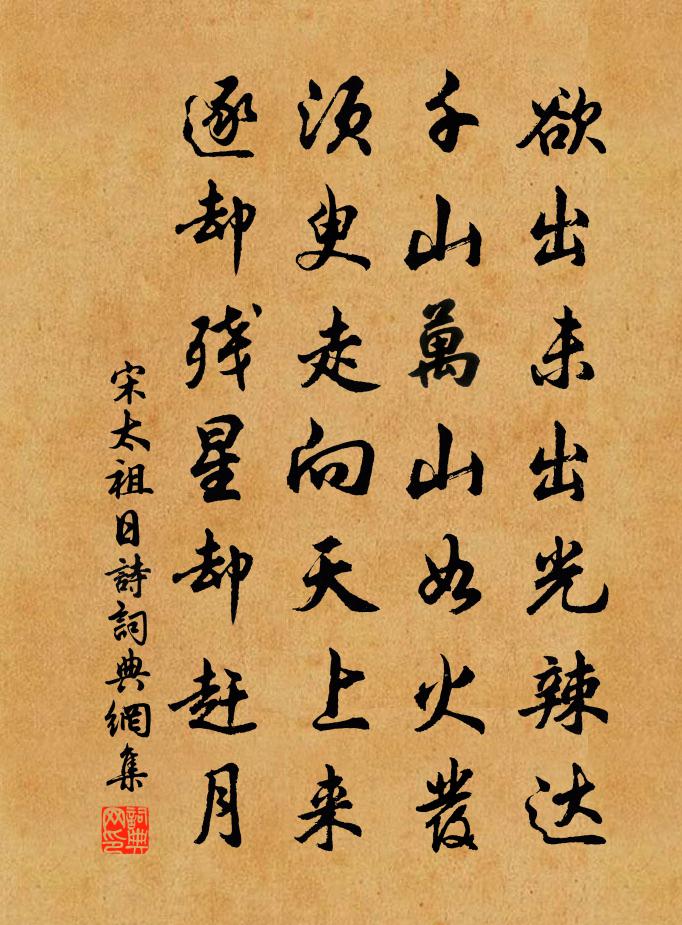 欲出未出光辣达
千山萬山如火發
须臾走向天上来
逐却残星却赶月
宋太祖日詩詞典網集
詞典網印